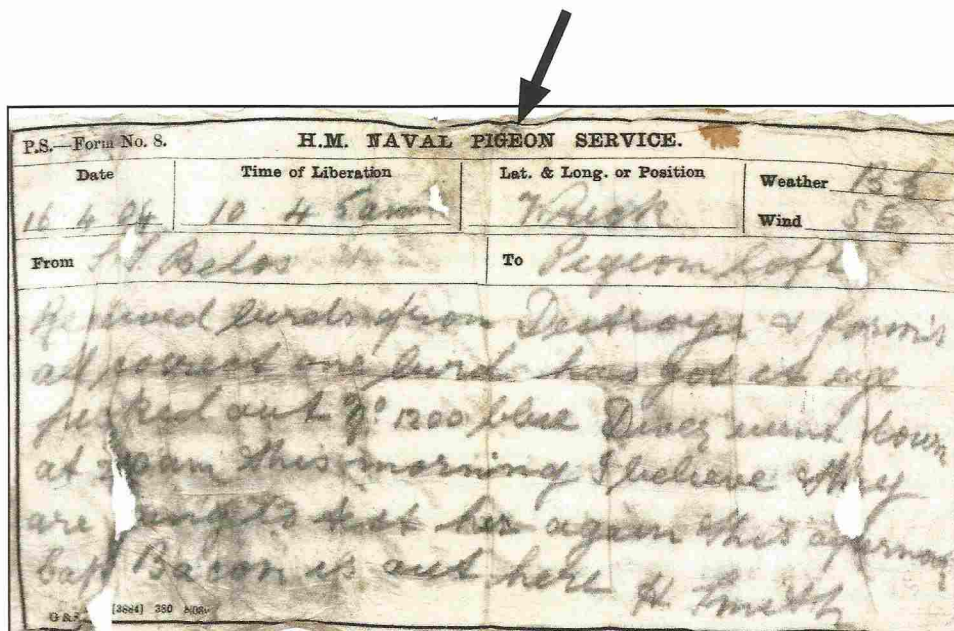 P.S.—Form No. 8. H.M. NAVAL PIGEON SERVICE.
Date Time of Liberation Lat. & Long. or Position Weather
16 4 04 10 4 Wreck
Wind S E
From Belos To Pigeon Loft
birds from Destroyer &
all correct one bird has got its eye
out No 1200 blue Diver went down
at this morning I believe they
are to test her again this afternoon
Capt Bacon is out here H. Smith
[3884] 380